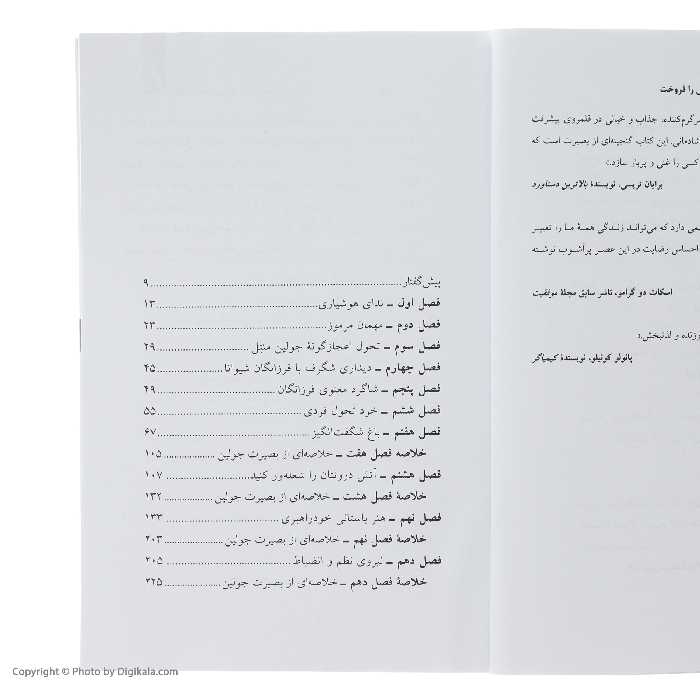 ی را فروخت
سرگرم‌کننده، جذاب و خیالی در قلمروی پیشرفت
شادمانی. این کتاب گنجینه‌ای از بصیرت است که
کسی را غنی و پربار سازد.»
برایان تریسی، نویسندهٔ بالاترین دستاورد
می دارد که می‌تواند زندگی همهٔ ما را تغییر
احساس رضایت در این عصر پرآشوب نوشته
اسکات دو گرامو، ناشر سابق مجلهٔ موفقیت
وزنده و لذتبخش.»
پائولو کوئیلو، نویسندهٔ کیمیاگر
پیش‌گفتار ۹
فصل اول ـ ندای هوشیاری ۱۳
فصل دوم ـ مهمان مرموز ۲۳
فصل سوم ـ تحول اعجازگونهٔ جولین منتل ۲۹
فصل چهارم ـ دیداری شگرف با فرزانگان شیوانا ۴۵
فصل پنجم ـ شاگرد معنوی فرزانگان ۴۹
فصل ششم ـ خرد تحول فردی ۵۵
فصل هفتم ـ باغ شگفت‌انگیز ۶۷
خلاصه فصل هفت ـ خلاصه‌ای از بصیرت جولین ۱۰۵
فصل هشتم ـ آتش درونتان را شعله‌ور کنید ۱۰۷
خلاصهٔ فصل هشت ـ خلاصه‌ای از بصیرت جولین ۱۳۲
فصل نهم ـ هنر باستانی خودراهبری ۱۳۳
خلاصهٔ فصل نهم ـ خلاصه‌ای از بصیرت جولین ۲۰۳
فصل دهم ـ نیروی نظم و انضباط ۲۰۵
خلاصهٔ فصل دهم ـ خلاصه‌ای از بصیرت جولین ۲۲۵
Copyright © Photo by Digikala.com